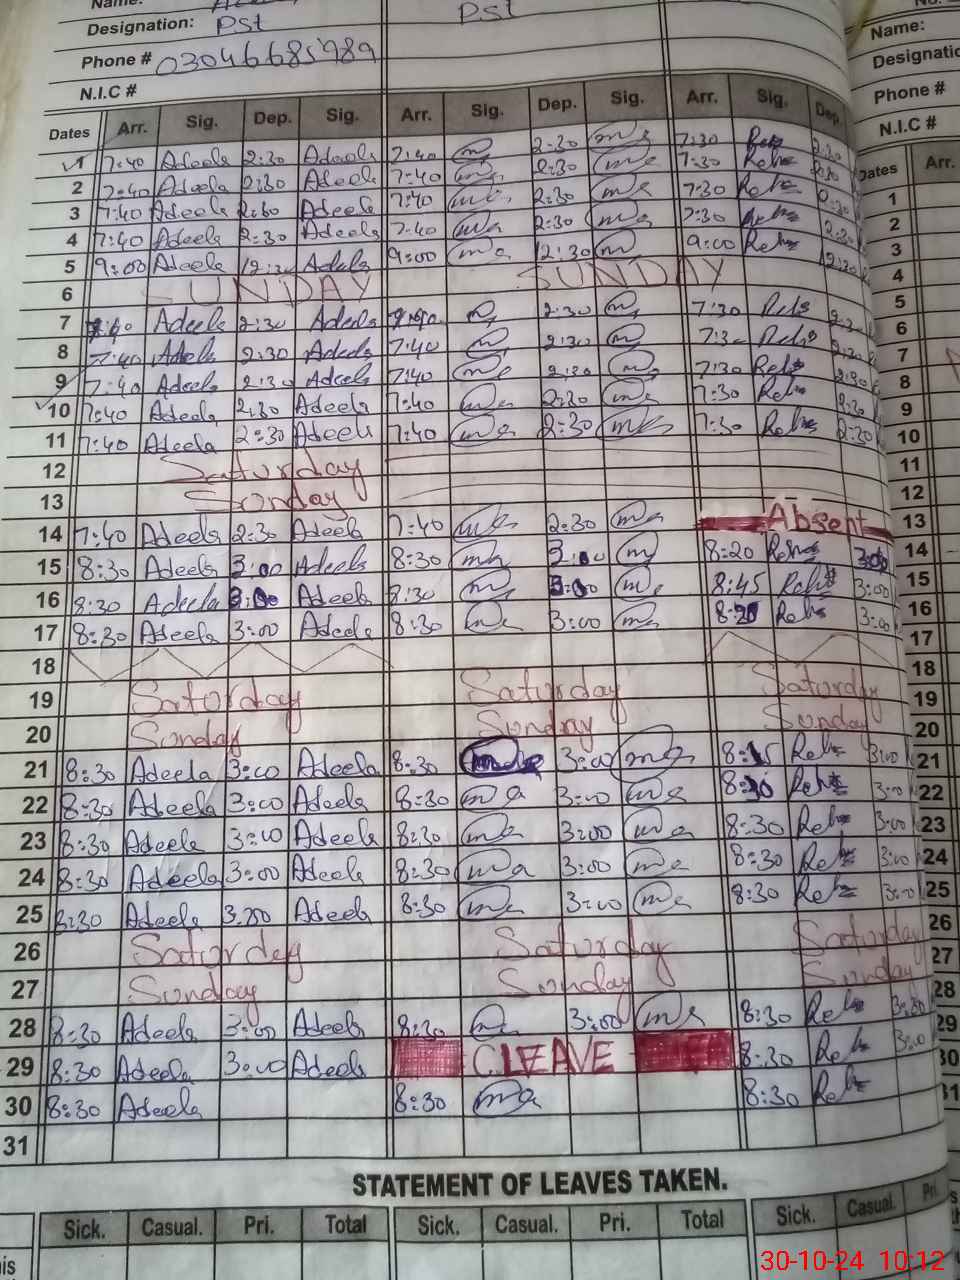 Name:
Designation: PSt PSt Name:
Phone # 03046685989 Designation
N.I.C # Phone #
N.I.C #
Dates Arr. Sig. Dep. Sig. Arr. Sig. Dep. Sig. Arr. Sig. Dep. Dates Arr.
1 7:40 Adeela 2:30 Adeela 7:40 2:30 7:30 Reh 2:30
2 7:40 Adeela 2:30 Adeela 7:40 2:30 7:30 Reh 2:30 1
3 7:40 Adeela 2:30 Adeela 7:40 2:30 7:30 Reh 2:30 2
4 7:40 Adeela 2:30 Adeela 7:40 2:30 7:30 Reh 2:30 3
5 9:00 Adeela 12:30 Adeela 9:00 12:30 9:00 Reh 12:30 4
6 SUNDAY SUNDAY
7 7:40 Adeela 2:30 Adeela 7:40 2:30 7:30 Reh 2:30 5
8 7:40 Adeela 2:30 Adeela 7:40 2:30 7:30 Reh 2:30 6
9 7:40 Adeela 2:30 Adeela 7:40 2:30 7:30 Reh 2:30 7
10 7:40 Adeela 2:30 Adeela 7:40 2:30 7:30 Reh 2:30 8
11 7:40 Adeela 2:30 Adeela 7:40 2:30 7:30 Reh 2:30 9
12 Saturday 10
13 Sonday 11
12
14 7:40 Adeela 2:30 Adeela 7:40 2:30 Absent 13
15 8:30 Adeela 3:00 Adeela 8:30 3:00 8:20 Reh 3:00 14
16 8:30 Adeela 3:00 Adeela 8:30 3:00 8:45 Reh 3:00 15
17 8:30 Adeela 3:00 Adeela 8:30 3:00 8:20 Reh 3:00 16
18 17
19 Saturday Saturday Saturday 18
20 Sonday Sonday Sonday 19
20
21 8:30 Adeela 3:00 Adeela 8:30 3:00 8:15 Reh 3:00 21
22 8:30 Adeela 3:00 Adeela 8:30 ma 3:00 ma 8:30 Reh 3:00 22
23 8:30 Adeela 3:00 Adeela 8:30 ma 3:00 ma 8:30 Reh 3:00 23
24 8:30 Adeela 3:00 Adeela 8:30 ma 3:00 ma 8:30 Reh 3:00 24
25 8:30 Adeela 3:00 Adeela 8:30 ma 3:00 ma 8:30 Reh 3:00 25
26 Saturday Saturday Saturday 26
27 Sonday Sonday Sonday 27
28 8:30 Adeela 3:00 Adeela 8:30 3:00 ma 8:30 Reh 3:00 28
29 8:30 Adeela 3:00 Adeela C.LEAVE 8:30 Reh 3:00 29
30 8:30 Adeela 8:30 ma 8:30 Reh 30
31 31
STATEMENT OF LEAVES TAKEN.
Sick. Casual. Pri. Total Sick. Casual. Pri. Total Sick. Casual. Pri.
30-10-24 10:12